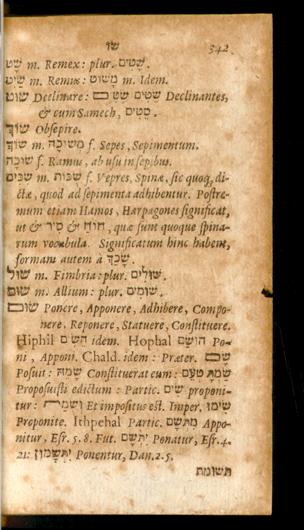 שו 342
שָׁט m. Remex: plur. שָׁטִים.
שַׁיִט m. Remus: מָשׁוֹט m. Idem.
שׂוּט Declinare: שָׂטִים Declinantes,
& cum Samech, סֵטִים.
שׂוּךְ Obsepire.
שׂוֹךְ m. מְשׂוּכָה f. Sepes, Sepimentum.
שׂוֹכָה f. Ramus, ab usu in sepibus.
שִׂכִּים m. שֻׂכּוֹת f. Vepres, Spinæ, sic quoq; di-
ctæ, quod ad sepimenta adhibentur. Postre-
mum etiam Hamos, Harpagones significat,
ut חוֹחַ & סִיר &, quæ sunt quoque spina-
rum vocabula. Significatum hinc habent,
formam autem à שָׂכַךְ.
שׁוּל m. Fimbria: plur. שׁוּלִים.
שׁוּם m. Allium: plur. שׁוּמִים.
שׂוּם Ponere, Apponere, Adhibere, Compo-
nere, Reponere, Statuere, Constituere.
Hiphil הֵשִׂים idem. Hophal הוּשַׂם Po-
ni, Apponi. Chald. idem: Præter. שָׂם
Posuit: שָׂמְתָּ Constituerat eum: שָׂמְתָּ טְעֵם
Proposuisti edictum: Partic. שִׂים proponi-
tur: Et impositus est. Imper. שִׂימוּ
Proponite. Ithpehal Partic. מִתְּשָׂם Appo-
nitur, Esr. 5. 8. Fut. יִתְּשָׂם Ponatur, Esr. 4.
21: יִתְּשָׂמוּן Ponentur, Dan. 2. 5.
תשומת